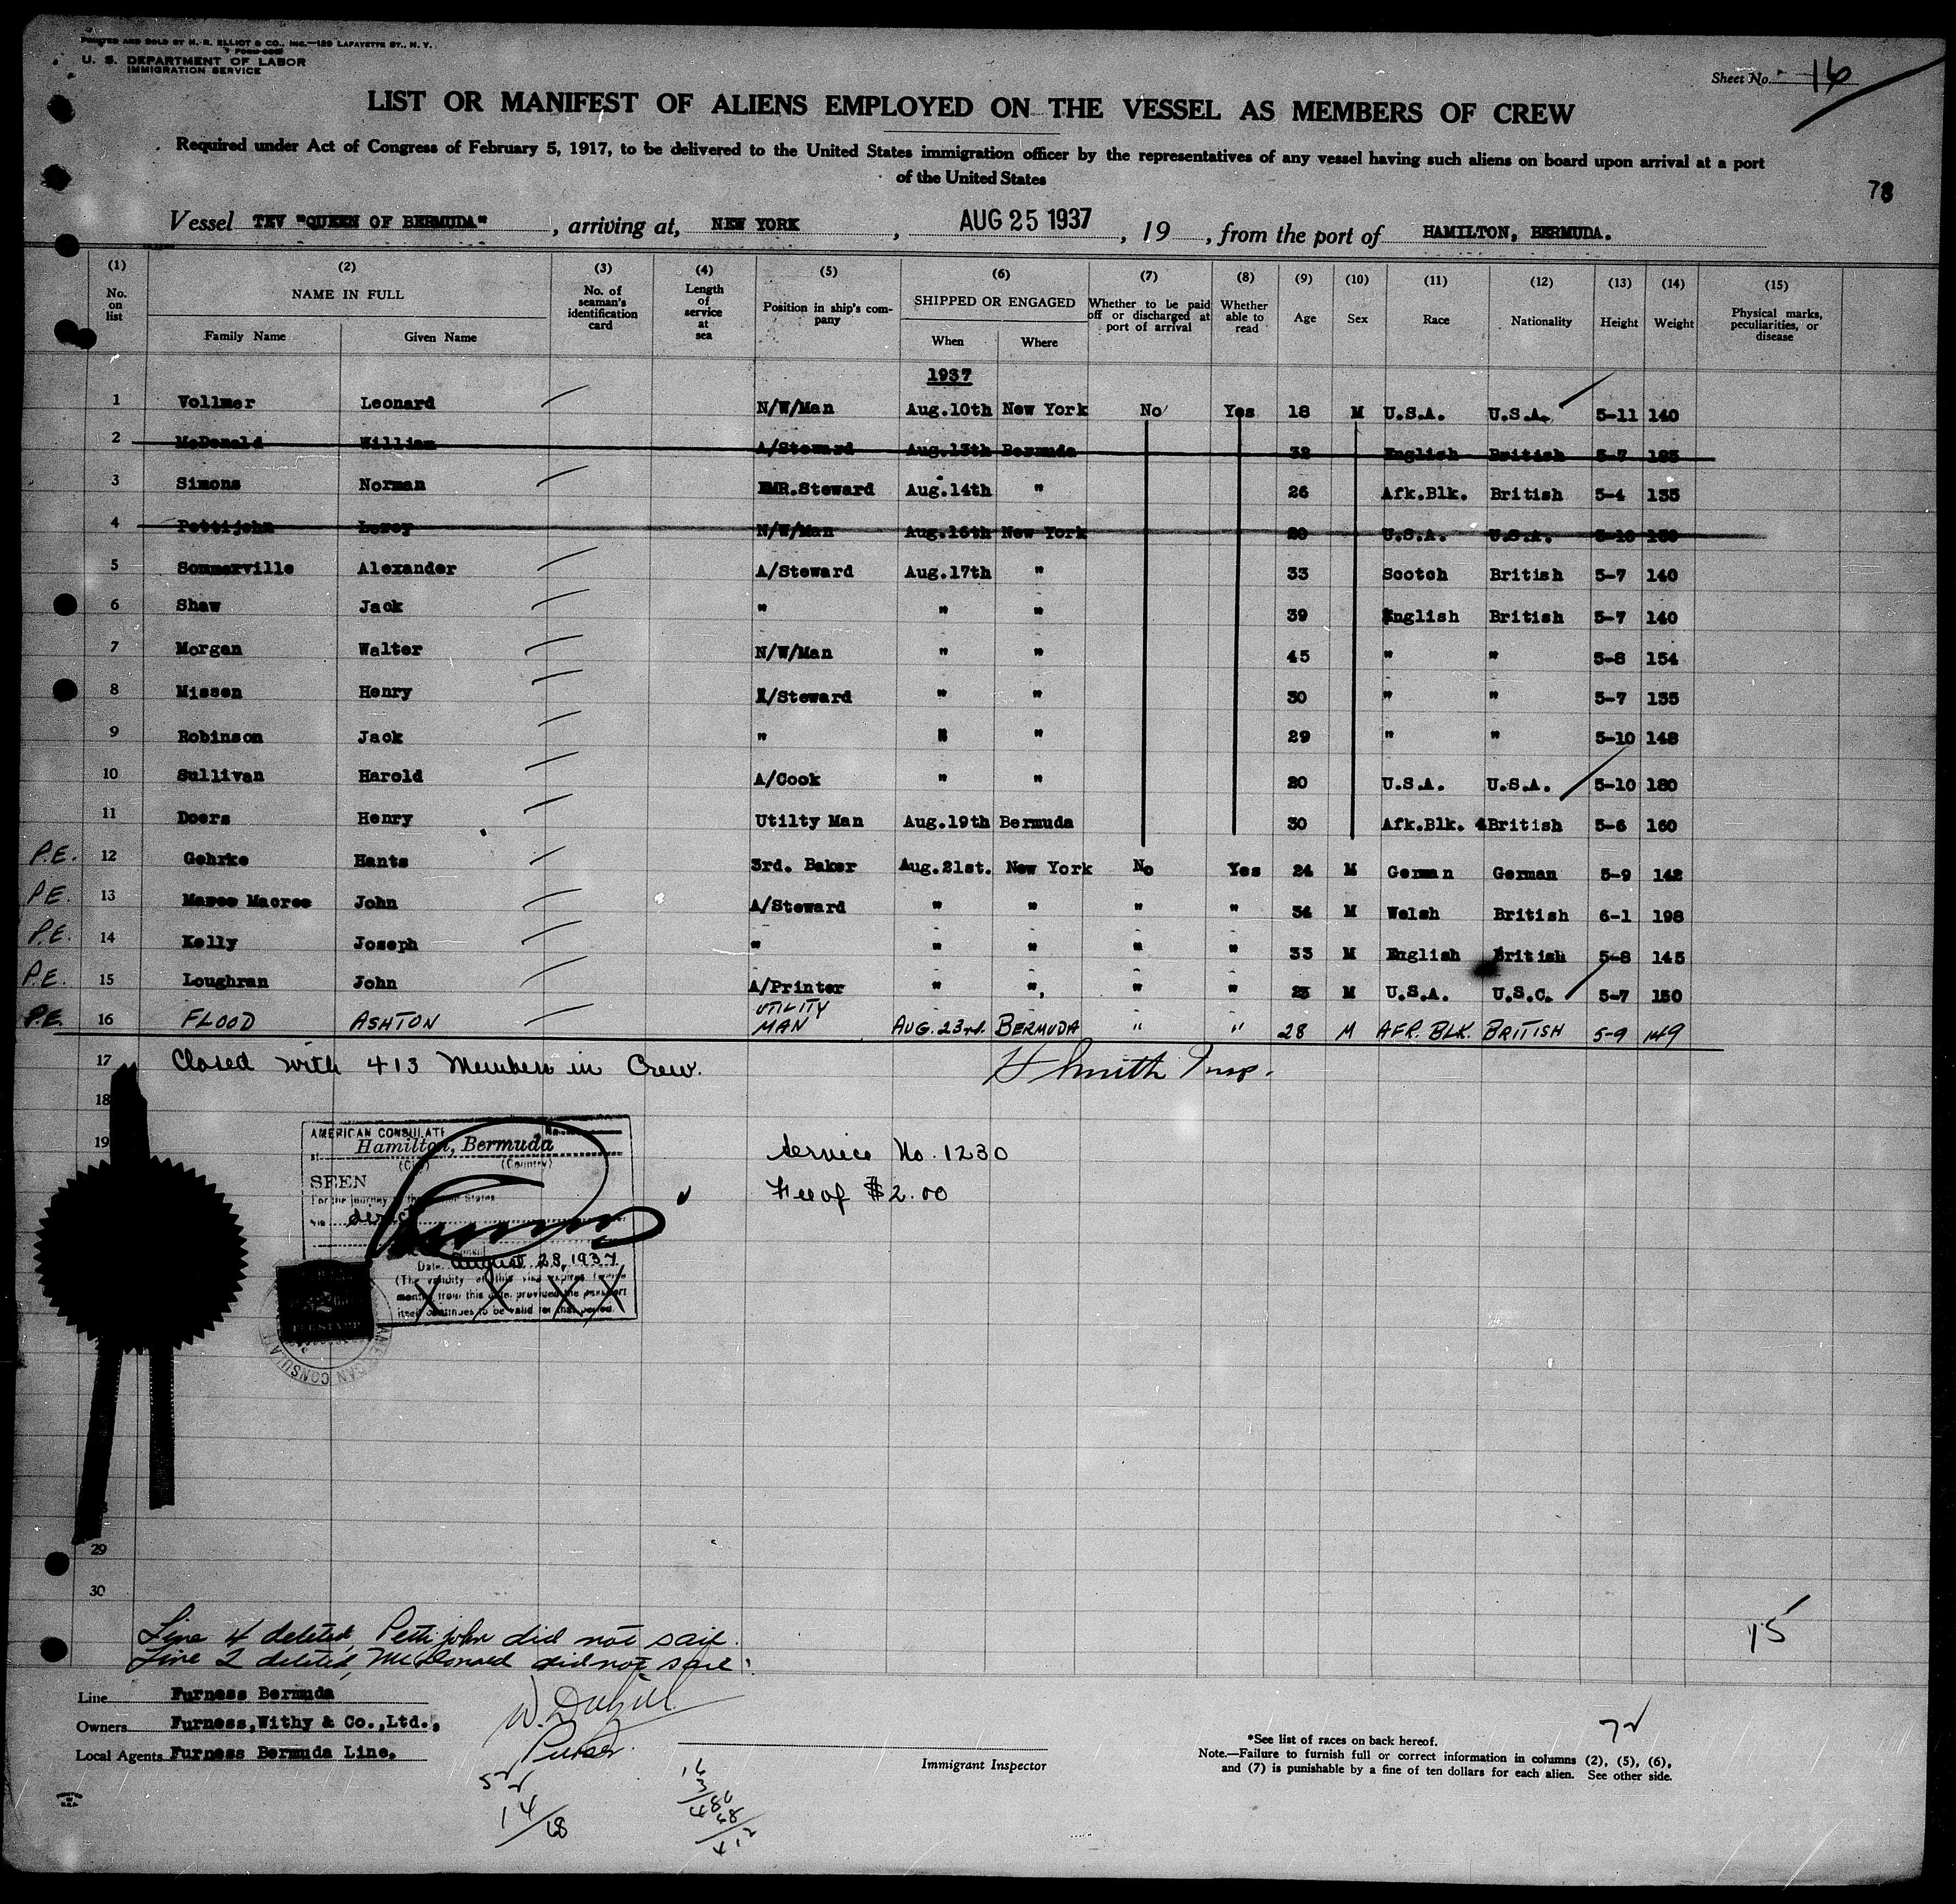 PRINTED AND SOLD BY H. R. ELLIOT & CO., INC.—129 LAFAYETTE ST., N. Y.
U. S. DEPARTMENT OF LABOR
IMMIGRATION SERVICE
Sheet No. 16
LIST OR MANIFEST OF ALIENS EMPLOYED ON THE VESSEL AS MEMBERS OF CREW
Required under Act of Congress of February 5, 1917, to be delivered to the United States immigration officer by the representatives of any vessel having such aliens on board upon arrival at a port
of the United States
78
Vessel TEV "QUEEN OF BERMUDA", arriving at, NEW YORK, AUG 25 1937, 19 , from the port of HAMILTON, BERMUDA.
(1) (2) (3) (4) (5) (6) (7) (8) (9) (10) (11) (12) (13) (14) (15)
No. on list
NAME IN FULL
Family Name Given Name
No. of seaman's identification card
Length of service at sea
Position in ship's company
SHIPPED OR ENGAGED
When Where
Whether to be paid off or discharged at port of arrival
Whether able to read
Age Sex Race Nationality Height Weight
Physical marks, peculiarities, or disease
1937
1 Vollmer Leonard N/W/Man Aug.10th New York No Yes 18 M U.S.A. U.S.A. 5-11 140
2 McDonald William A/Steward Aug.13th Bermuda 32 English British 5-7 185
3 Simons Norman BMR.Steward Aug.14th " 26 Afk.Blk. British 5-4 135
4 Pettijohn Leroy N/W/Man Aug.16th New York 20 U.S.A. U.S.A. 5-10 150
5 Sommerville Alexander A/Steward Aug.17th " 33 Scotch British 5-7 140
6 Shaw Jack " " " 39 English British 5-7 140
7 Morgan Walter N/W/Man " " 45 " " 5-8 154
8 Missen Henry A/Steward " " 30 " " 5-7 135
9 Robinson Jack " " " 29 " " 5-10 148
10 Sullivan Harold A/Cook " " 20 U.S.A. U.S.A. 5-10 180
11 Doers Henry Utilty Man Aug.19th Bermuda 30 Afk.Blk. British 5-6 160
P.E. 12 Gehrke Hants 3rd. Baker Aug.21st. New York No Yes 24 M German German 5-9 142
P.E. 13 Macree John A/Steward " " " " 34 M Welsh British 6-1 198
P.E. 14 Kelly Joseph " " " " " 33 M English British 5-8 145
P.E. 15 Loughran John A/Printer " " " " 23 M U.S.A. U.S.C. 5-7 150
P.E. 16 FLOOD ASHTON UTILITY MAN AUG. 23rd. BERMUDA " " 28 M AFR. BLK. BRITISH 5-9 149
17 Closed with 413 Members in Crew. H Smith Insp.
18
19
AMERICAN CONSULATE
at Hamilton, Bermuda
(City) (Country)
SEEN
For the journey to the United States
via direct
Date August 23, 1937
(The validity of this visa expires twelve
months from this date, provided the passport
itself continues to be valid for that period.
AMERICAN CONSULATE
Service No. 1230
Fee of $2.00
29
30
15
Line 4 deleted, Pettijohn did not sail.
Line 2 deleted, McDonald did not sail.
Line Furness Bermuda
Owners Furness, Withy & Co., Ltd.,
Local Agents Furness Bermuda Line.
Purser.
Immigrant Inspector
*See list of races on back hereof.
Note.—Failure to furnish full or correct information in columns (2), (5), (6),
and (7) is punishable by a fine of ten dollars for each alien. See other side.